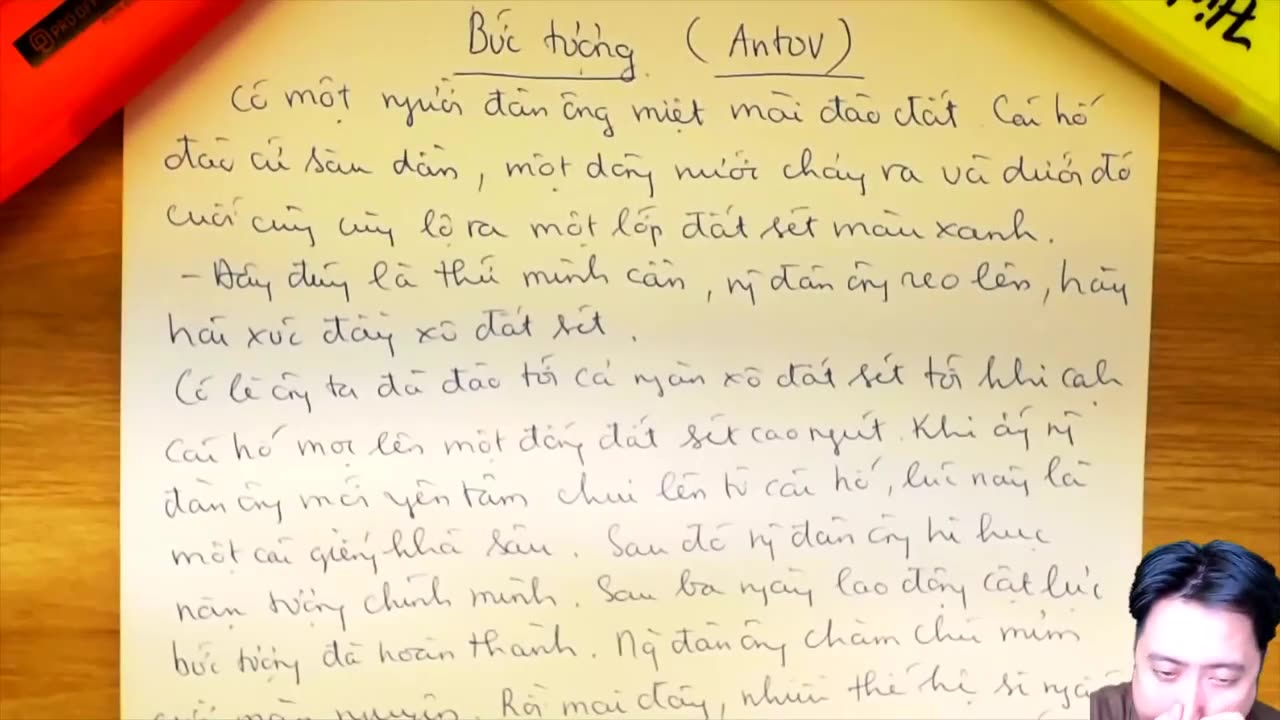 PRO OFF
Bức tượng (Antov)
Có một người đàn ông miệt mài đào đất. Cái hố
đào cứ sâu dần, một dòng nước chảy ra và dưới đó
cuối cùng cũng lộ ra một lớp đất sét màu xanh.
- Đây đúng là thứ mình cần, ng đàn ông reo lên, hăm
hở xúc đầy xô đất sét.
Có lẽ ông ta đã đào tới cả ngàn xô đất sét tới khi cạnh
cái hố mọc lên một đống đất sét cao ngút. Khi ấy ng
đàn ông mới yên tâm chui lên từ cái hố, lúc này là
một cái giếng khá sâu. Sau đó ng đàn ông hì hục
nặn tượng chính mình. Sau ba ngày lao động cật lực
bức tượng đã hoàn thành. Ng đàn ông chăm chú mỉm
mãn nguyện. Rồi mai đây, nhiều thế hệ sẽ